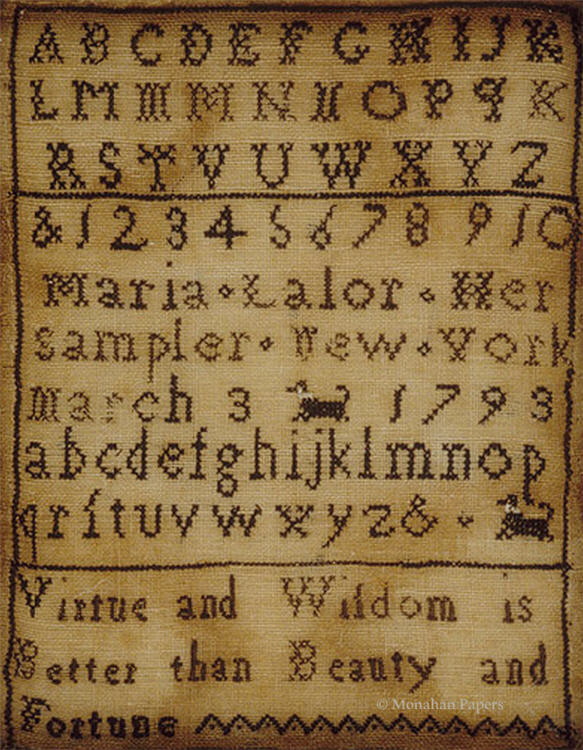 A B C D E F G H I J K
L M M M N N O P q K
R S T V U W X Y Z
& 1 2 3 4 5 6 7 8 9 10
Maria · Lalor · Her
sampler · New · York
March 3 1793
abcdefghijklmnop
qrſtuvwxyz& ·
Virtue and Wiſdom is
Better than Beauty and
Fortune
© Monahan Papers